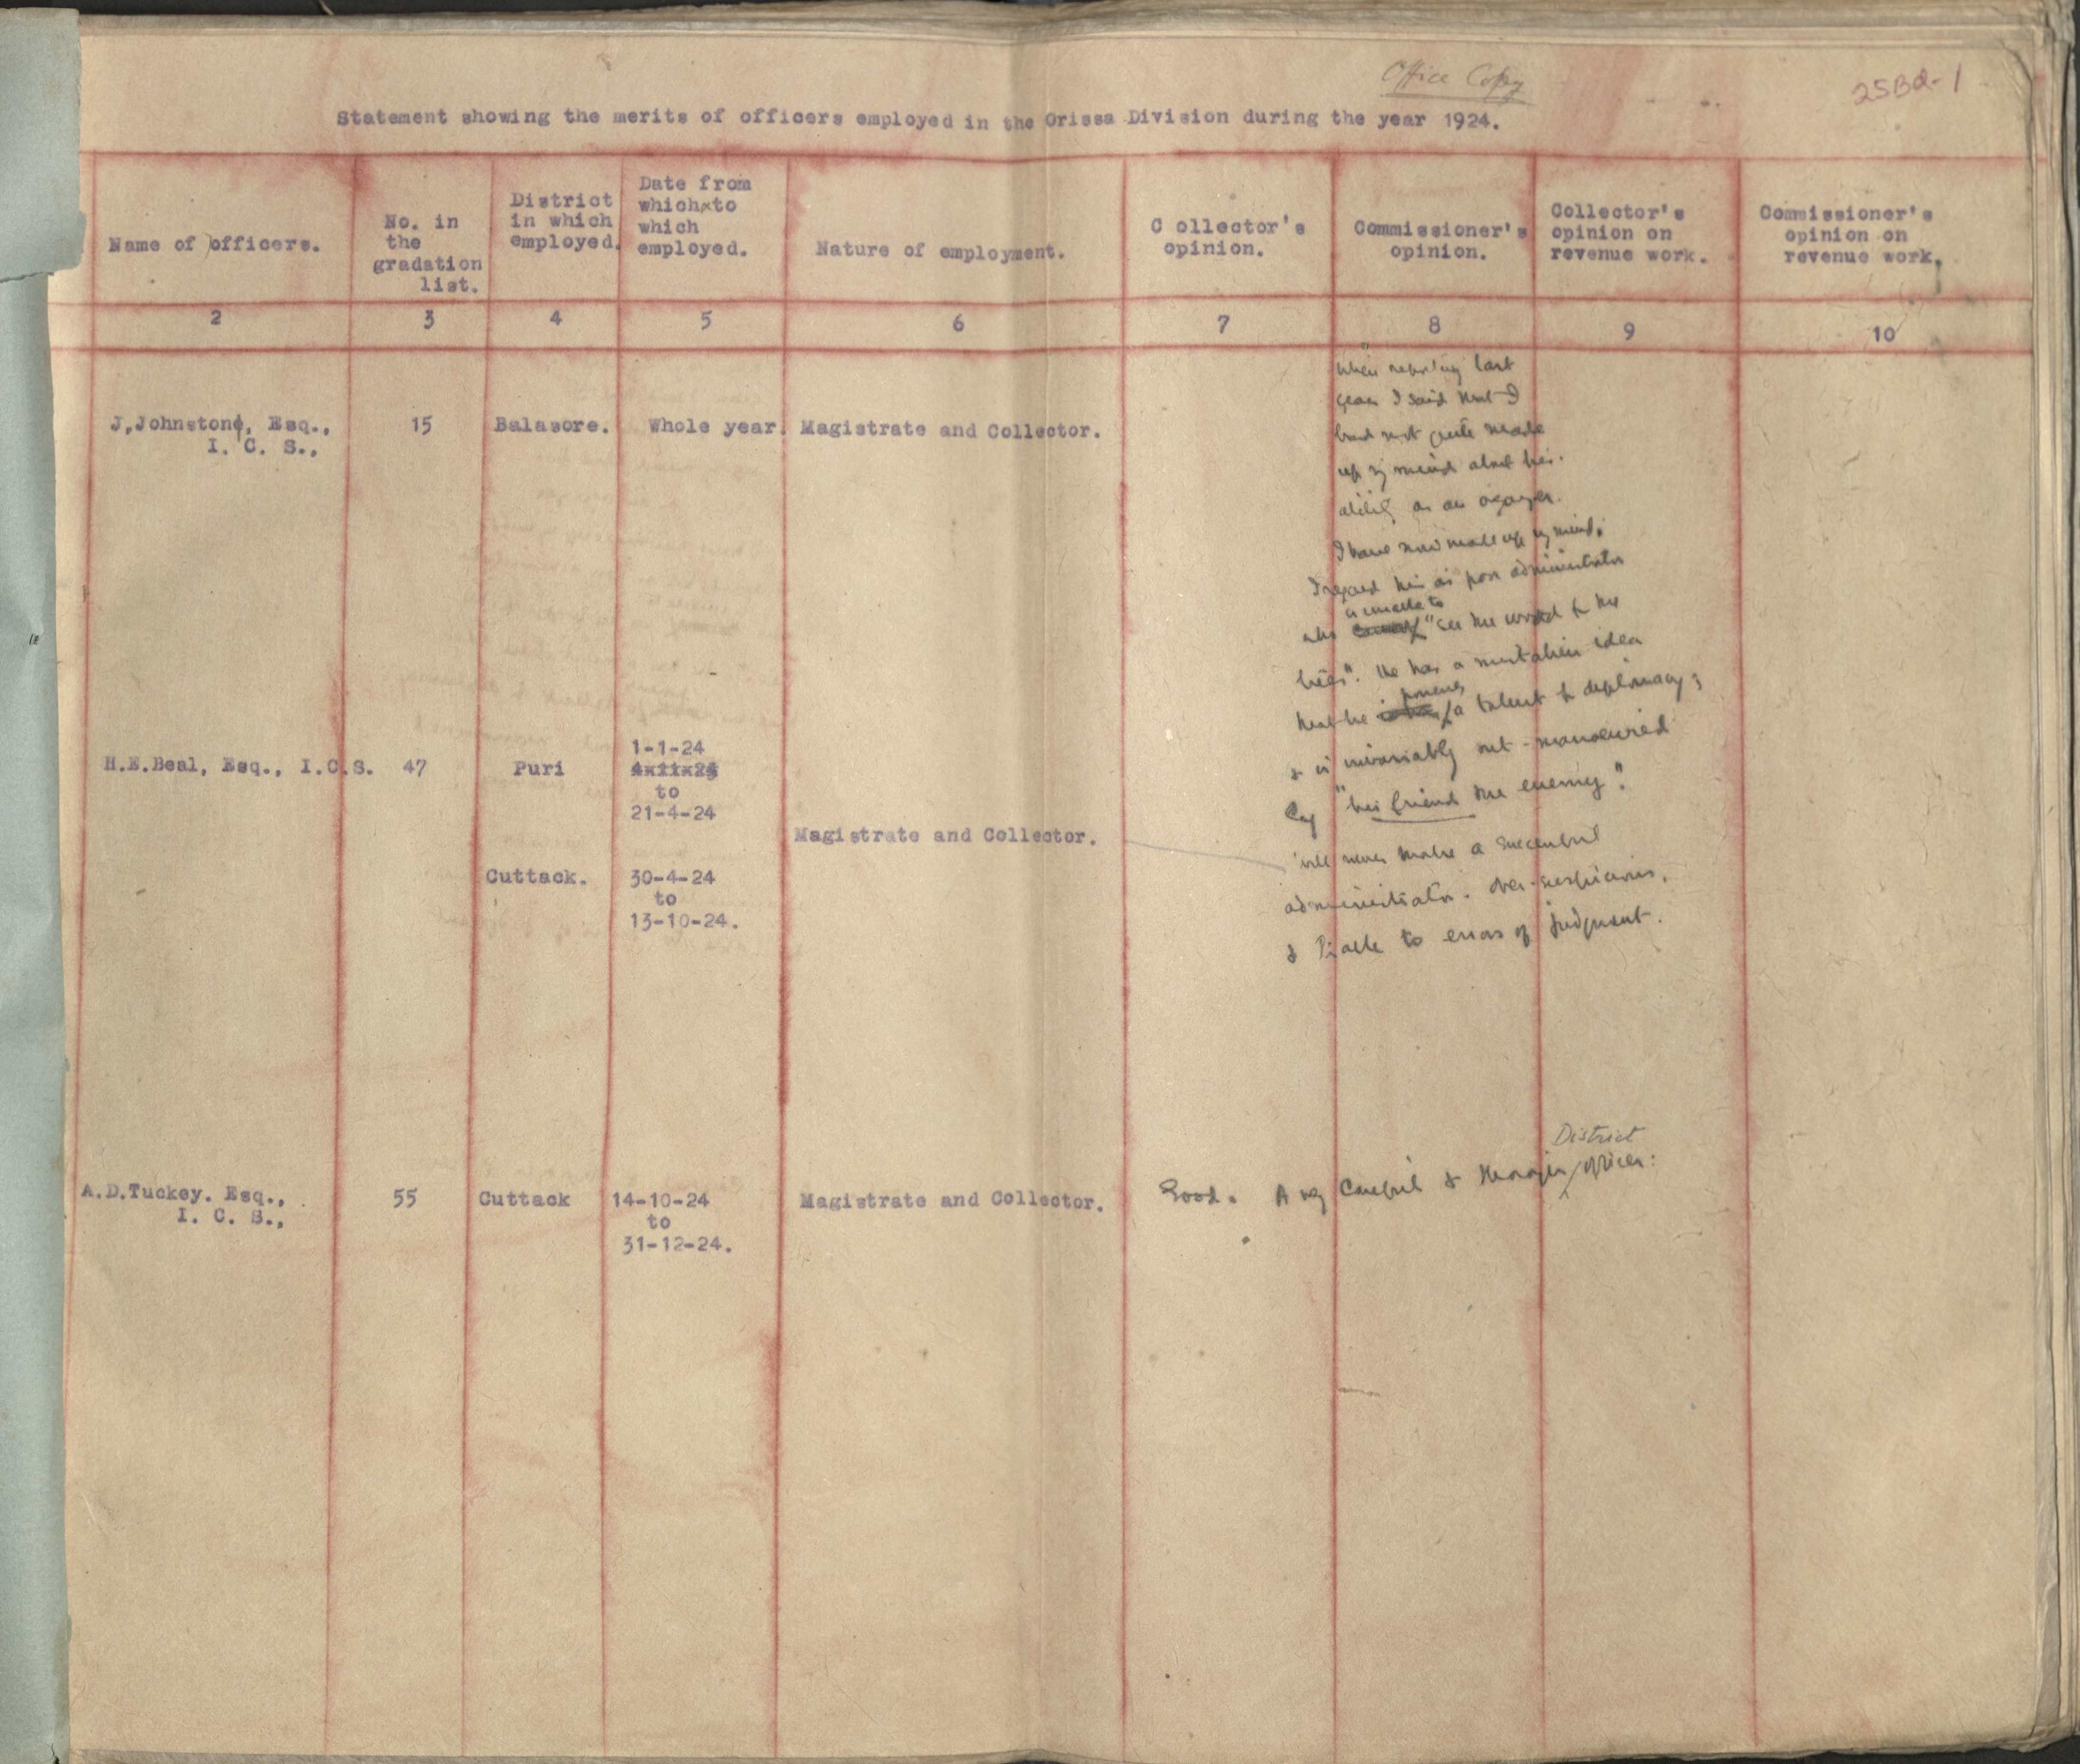 Office Copy
25Bd-1
Statement showing the merits of officers employed in the Orissa Division during the year 1924.
Name of officers.
No. in
the
gradation
list.
District
in which
employed.
Date from
which to
which
employed.
Nature of employment.
C ollector's
opinion.
Commissioner's
opinion.
Collector's
opinion on
revenue work.
Commissioner's
opinion on
revenue work.
2 3 4 5 6 7 8 9 10
J,Johnstone, Esq.,
I. C. S.,
15
Balasore.
Whole year.
Magistrate and Collector.
When reporting last
year I said that I
had not quite made
up my mind about his
ability as an organizer.
I have now made up my mind.
I regard him as poor administrator
who is unable to "see the wood for the
trees". He has a mistaken idea
that he possesses a talent for diplomacy;
& is invariably out-manoeuvred
by "his friend the enemy".
H.E.Beal, Esq., I.C.S.
47
Puri
1-1-24
to
21-4-24
Cuttack.
30-4-24
to
13-10-24.
Magistrate and Collector.
will never make a successful
administrator. Over-suspicious,
& liable to errors of judgment.
A.D.Tuckey. Esq.,
I. C. S.,
55
Cuttack
14-10-24
to
31-12-24.
Magistrate and Collector.
Good. A very careful & thorough District officer.